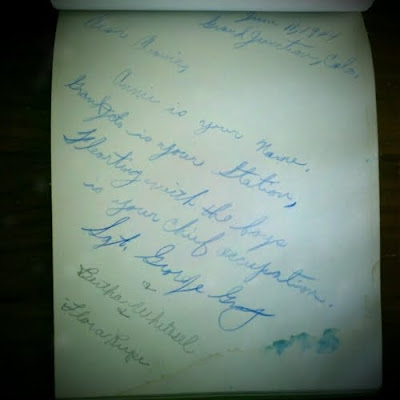 June 16, 1904
Grand Junction, Colo.
Dear Annie,
Annie is your Name.
is your Station,
Flerting with the boys
is your chief occupation.
Sgt. George
&
Bertha Whitsel
&
Flora